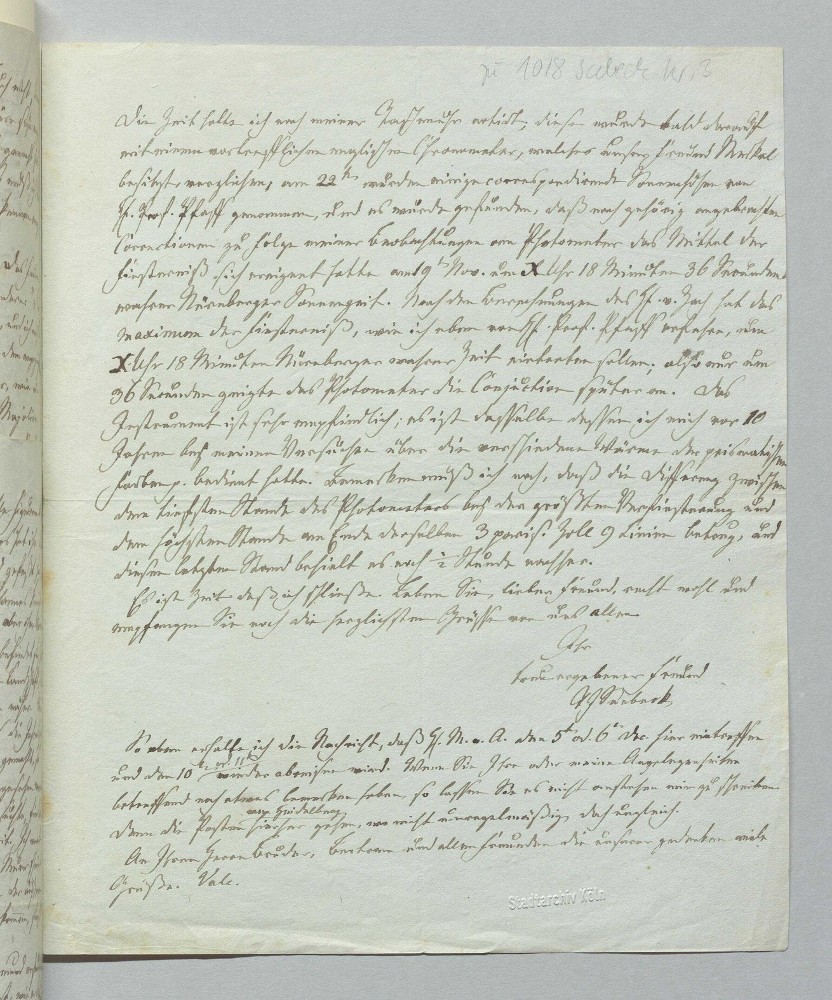 zu 1018 Seebeck Nr. 3
Die Zeit hatte ich nach meiner Taschenuhr notirt; diese wurde bald darauf
mit einem vortrefflichen englischen Chronometer, welches unser Freund Merkel
besitzt, verglichen, am 22t wurden einige correspondirende Sonnenhöhen von
H. Prof. Pfaff genommen, und es wurde gefunden, daß nach gehörig angebrachten
Correctionen zu Folge meiner Beobachtungen am Photometer das Mittel der
Finsterniß sich ereignet hatte am 19t Nov. um X Uhr 18 Minuten 36 Secunden
wahrer Nürnberger Sonnenzeit. Nach den Berechnungen des H. v. Zach hat das
Maximum der Finsterniß, wie ich eben von H. Prof. Pfaff erfahre, um
X Uhr 18 Minuten Nürnberger wahrer Zeit eintreten sollen; also nur um
36 Secunden zeigte das Photometer die Conjuction später an. Das
Instrument ist sehr empfindlich; es ist dasselbe dessen ich mich vor 10
Jahren bey meinen Versuchen über die verschiedene Wärme der prismatischen
Farben p. bedient hatte. Bemerken muß ich noch, daß die Differenz zwischen
dem tiefsten Stande des Photometers bey der größten Verfinsterung und
dem höchsten Stande am Ende derselben 3 paris. Zoll 9 Linien betrug, und
diesen letzten Stand behielt es noch ½ Stunde nachher.
Es ist Zeit daß ich schließe. Leben Sie, lieber Freund, recht wohl und
empfangen Sie noch die herzlichsten Grüsse von uns allen
Ihr
treu ergebener Freund
TJSeebeck
So eben erhalte ich die Nachricht, daß H. M. v. A. den 5t od. 6t Dec. hier eintreffen
und den 10t od. 11t wieder abreisen wird. Wenn Sie Ihre oder meine Angelegenheiten
betreffend noch etwas bemerken haben, so lassen Sie es nicht anstehen mir zu schreiben
denn die Posten von Heidelberg hierher gehen, wo nicht unregelmäßig, doch ungleich.
An Ihren Herrn Bruder, Bertram und allen Freunden die unserer gedenken viele
Grüße. Vale.
Stadtarchiv Köln